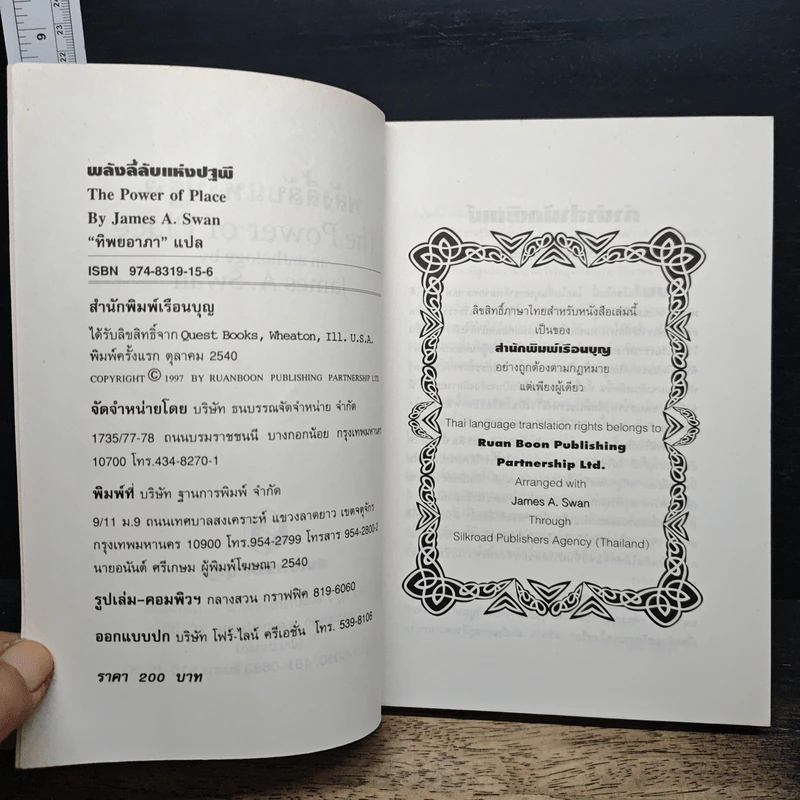 พลังลี้ลับแห่งปฐพี
The Power of Place
By James A. Swan
“ทิพยอาภา” แปล
ISBN 974-8319-15-6
สำนักพิมพ์เรือนบุญ
ได้รับลิขสิทธิ์จาก Quest Books, Wheaton, Ill. U.S.A.
พิมพ์ครั้งแรก ตุลาคม 2540
COPYRIGHT © 1997 BY RUANBOON PUBLISHING PARTNERSHIP LTD
จัดจำหน่ายโดย บริษัท ธนบรรณจัดจำหน่าย จำกัด
1735/77-78 ถนนบรมราชชนนี บางกอกน้อย กรุงเทพมหานคร
10700 โทร.434-8270-1
พิมพ์ที่ บริษัท ฐานการพิมพ์ จำกัด
9/11 ม.9 ถนนเทศบาลสงเคราะห์ แขวงลาดยาว เขตจตุจักร
กรุงเทพมหานคร 10900 โทร.954-2799 โทรสาร 954-2800-2
นายอนันต์ ศรีเกษม ผู้พิมพ์โฆษณา 2540
รูปเล่ม-คอมพิวฯ กลางสวน กราฟฟิค 819-6060
ออกแบบปก บริษัท โฟร์-ไลน์ ครีเอชั่น โทร. 539-8106
ราคา 200 บาท
ลิขสิทธิ์ภาษาไทยสำหรับหนังสือเล่มนี้
เป็นของ
สำนักพิมพ์เรือนบุญ
อย่างถูกต้องตามกฎหมาย
แต่เพียงผู้เดียว
Thai language translation rights belongs to
Ruan Boon Publishing
Partnership Ltd.
Arranged with
James A. Swan
Through
Silkroad Publishers Agency (Thailand)